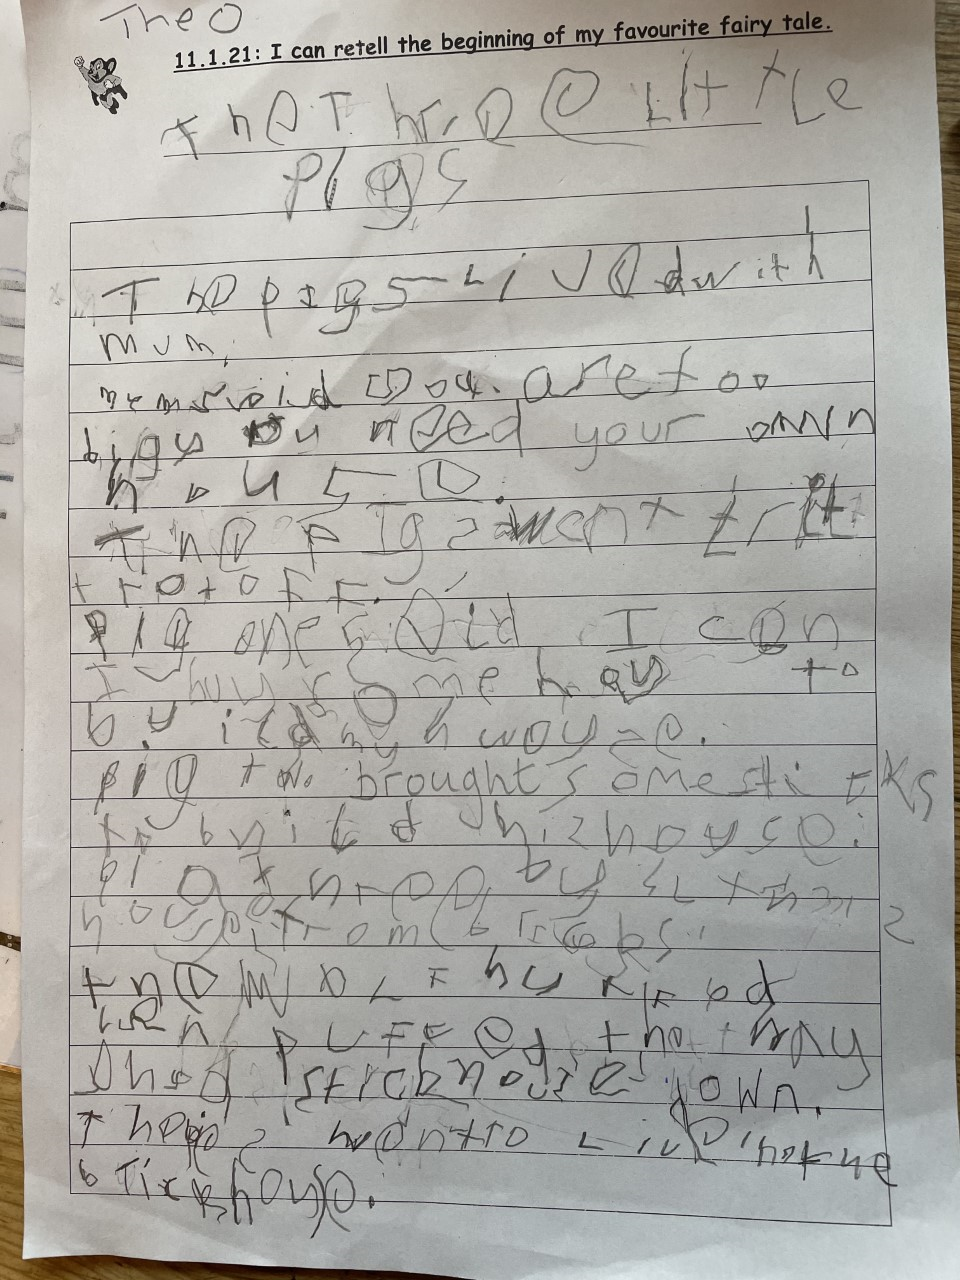 Theo
11.1.21: I can retell the beginning of my favourite fairy tale.
the Three Little
Pigs
The pigs lived with
mum.
mum said you are too
big you need your own
house.
the pigs went trit
trot off.
Pig one said I can
I buy some hay to
buildmy hwouse.
pig two brought somesticks
to build his house.
pig three
house from bricks.
the wolf huffed
puffed the hay
and stick house down.
the pigs went to live in the
brick house.